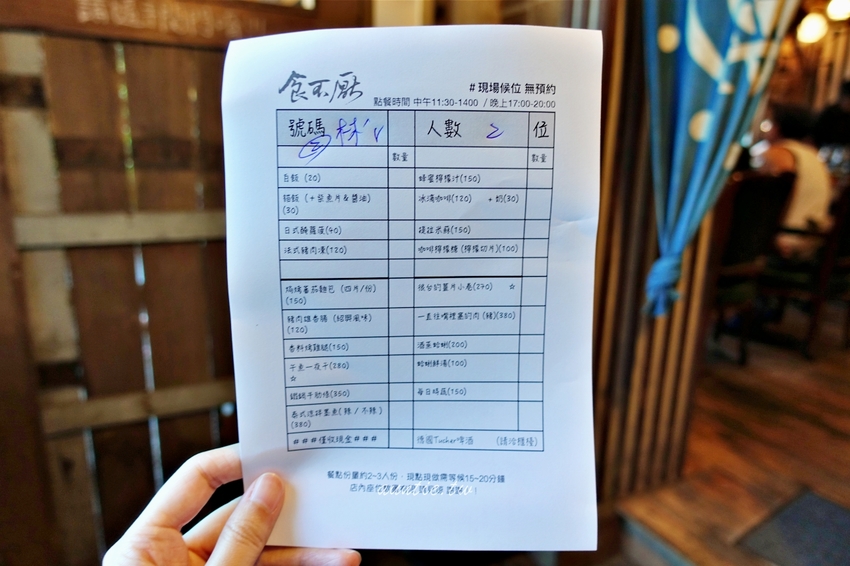 食不厭
#現場候位 無預約
點餐時間 中午11:30-1400 / 晚上17:00-20:00
號碼 林 人數 2 位
數量 數量
白飯 (20) 蜂蜜檸檬汁(150)
貓飯 (+柴魚片&醬油) 冰滴咖啡(120) +奶(30)
(30)
日式 蘿蔔(40) 提拉米蘇(150)
法式豬肉凍(120) 咖啡檸檬糖 (檸檬切片)(100)
焗烤蕃茄麵包 (四片/份) 很台的薑片小卷(270) ☆
(150)
豬肉雄香腸 (紹興風味) 一直往嘴裡塞的肉 (豬)(380)
(120)
香料烤雞腿(150) 酒蒸蛤蜊(200)
午魚一夜干(280) 蛤蜊鮮湯(100)
☆
鐵鍋牛肋條(350) 每日時蔬(150)
泰式涼拌墨魚(辣 / 不辣)
(380)
###僅收現金### 德國Tucher啤酒 (請洽櫃檯)
餐點份量約2~3人份,現點現做需等候15~20分鐘
店內座位